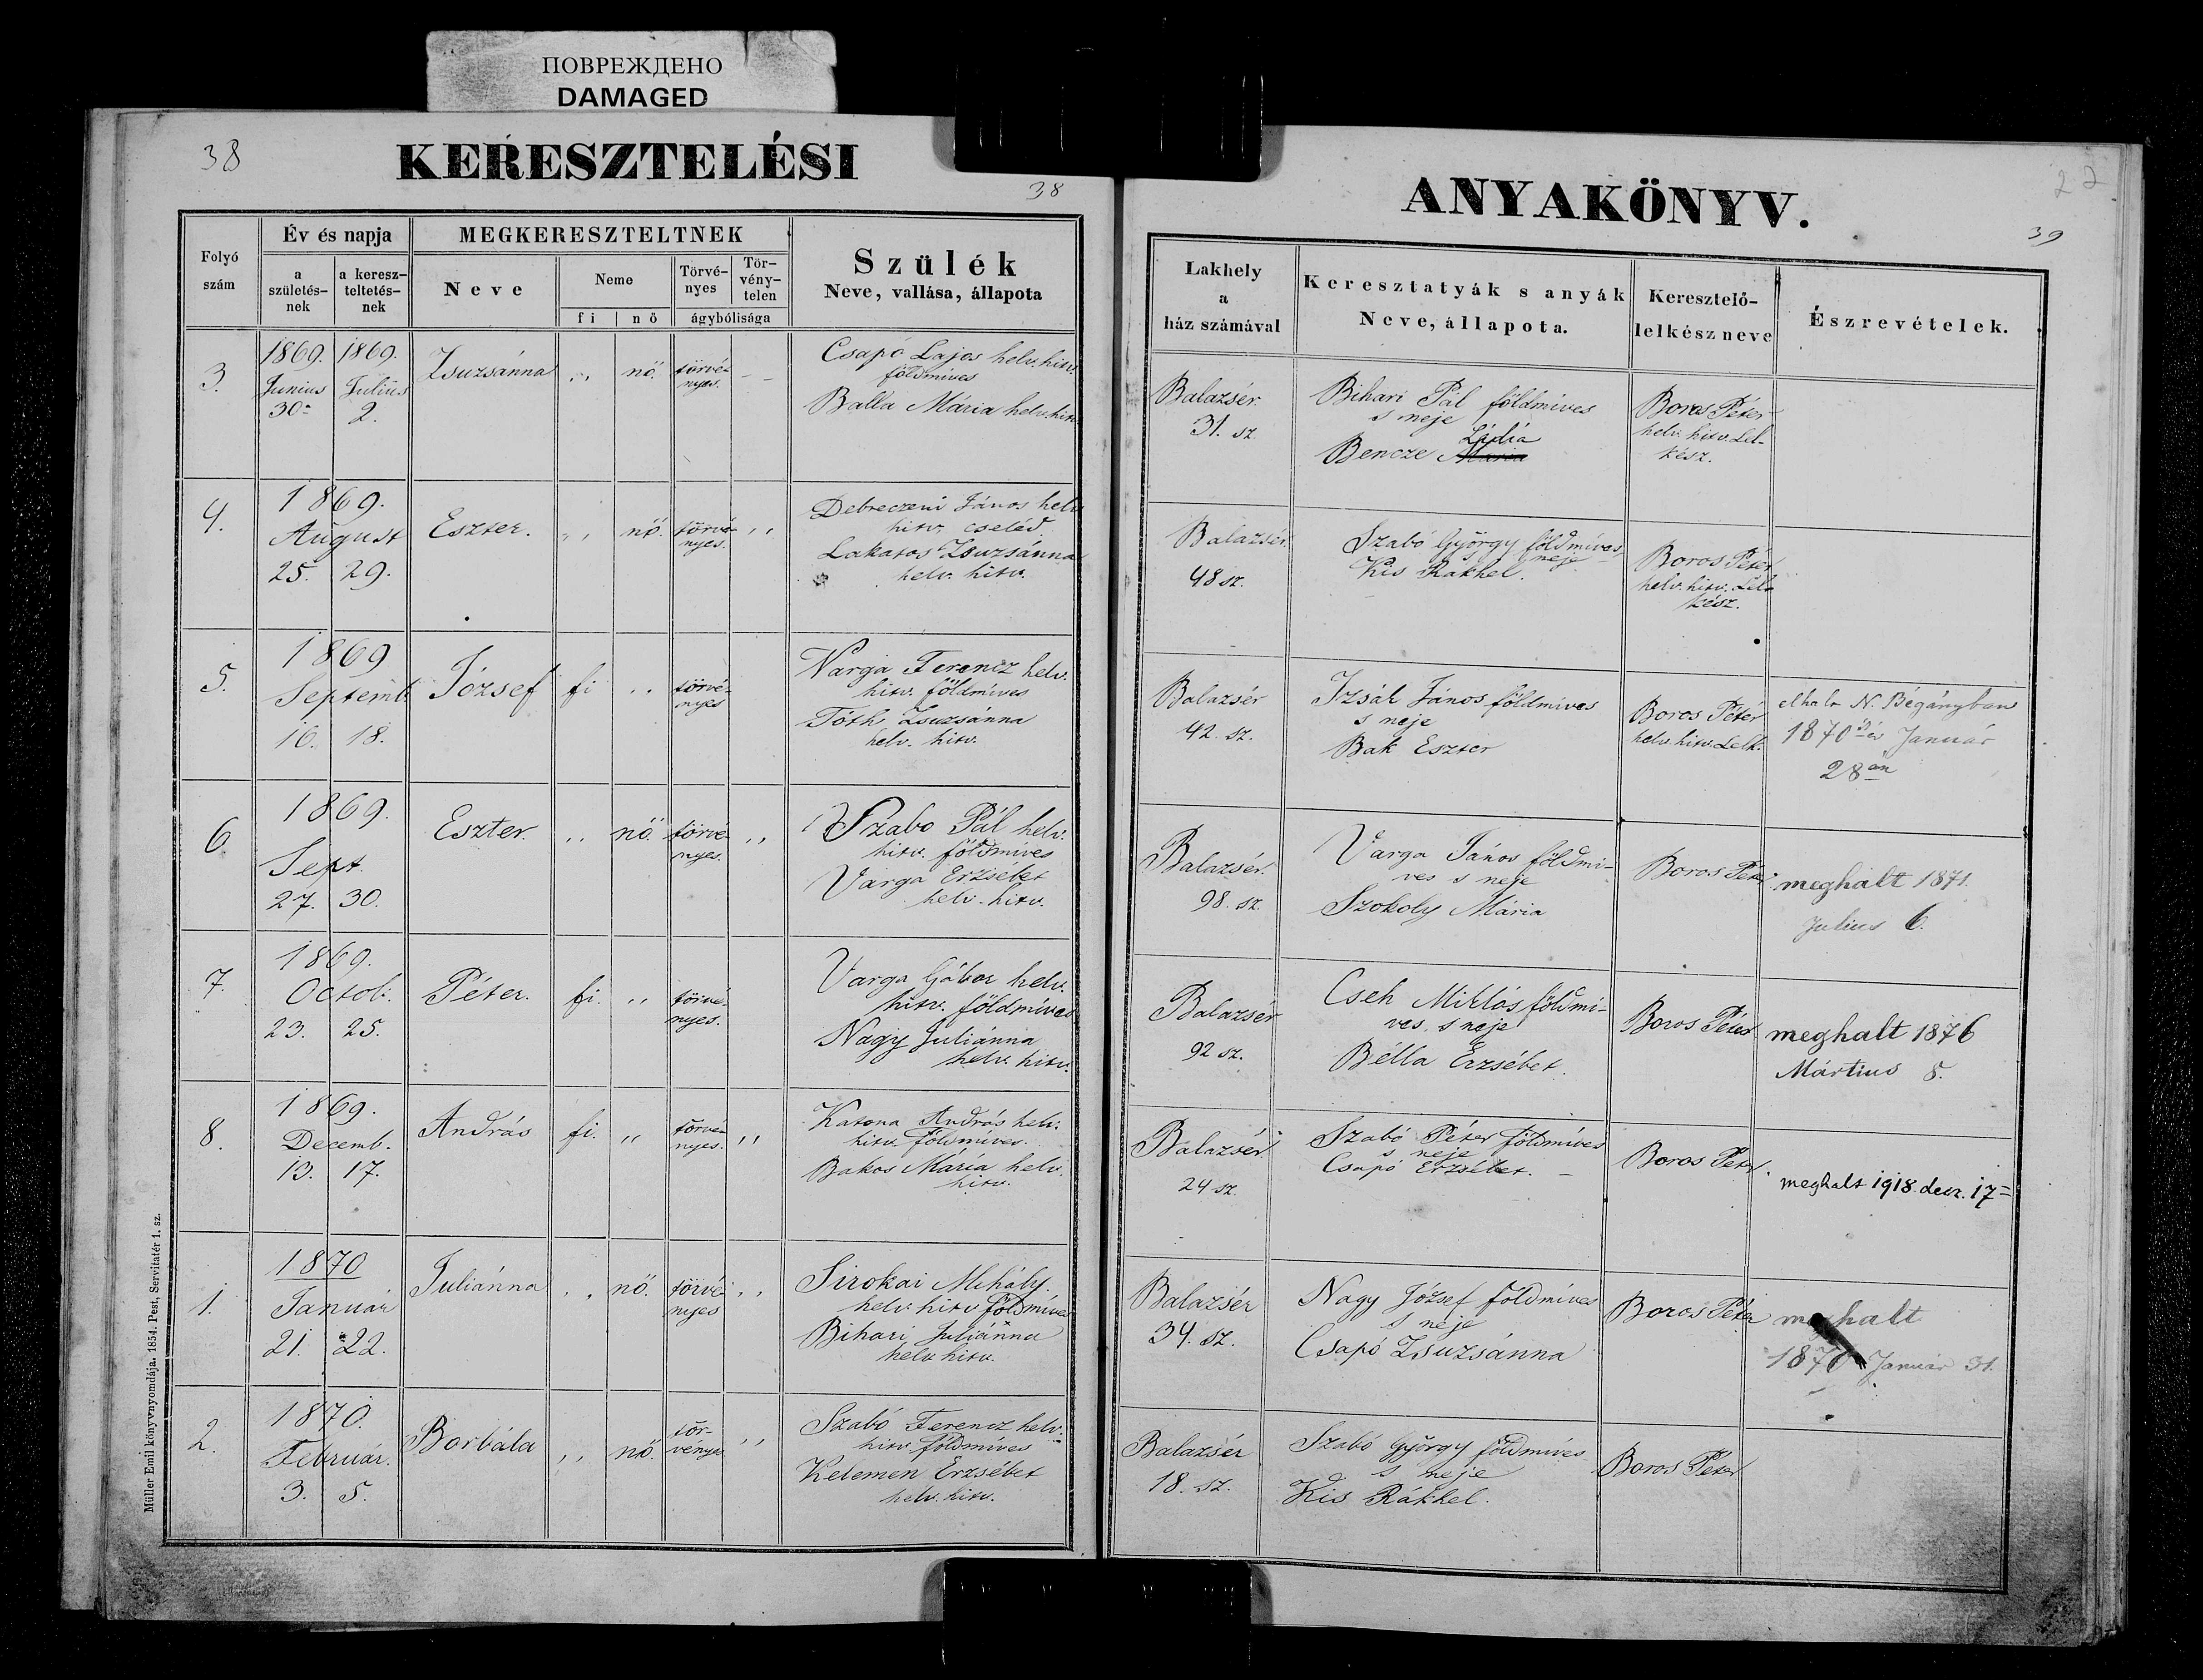 ПОВРЕЖДЕНО
DAMAGED
38
KERESZTELÉSI
38
Folyó szám
Év és napja
a születés-nek
a keresz-teltetés-nek
MEGKERESZTELTNEK
Neve
Neme
fi
nö
Törvé-nyes
Tör-vény-telen
ágybólisága
Szülék
Neve, vallása, állapota
22
ANYAKÖNYV.
39
Lakhely
a
ház számával
Keresztatyák s anyák
Neve, állapota.
Keresztelő-
lelkész neve
Észrevételek.
3.
1869. 1869.
Junius Julius
30. 2.
Zsuzsánna
,, nő. törvé-
nyes. –
Csapó Lajos helv. hitv.
földmíves
Balla Mária helv. hitv.
Balazsér.
31. sz.
Bihari Pál földmíves
s neje
Lidia
Bencze Mária
Boros Péter
helv. hitv. Lel-
kész.
4.
1869.
August
25. 29.
Eszter.
,, nő. törvé-
nyes. ,,
Debreczeni János helv.
hitv. cseléd
Lakatos Zsuzsánna
helv. hitv.
Balazsér.
48 sz.
Szabó György földmíves
s neje
Kis Rakhel.
Boros Péter
helv. hitv. Lel-
kész.
5.
1869
Septemb.
16. 18.
József
fi ,, törvé-
nyes
Varga Ferencz helv.
hitv. földmíves
Tóth Zsuzsánna
helv. hitv.
Balazsér
42. sz.
Izsák János földmíves
s neje
Bak Eszter
Boros Péter
helv. hitv. Lelk.
elhala N. Bégányban
1870 Január
28án
6
1869.
Sept.
27. 30.
Eszter.
,, nő. törvé-
nyes. ,,
Szabo Pál helv.
hitv. földmíves
Varga Erzsébet
helv. hitv.
Balazsér.
98. sz.
Varga János földmi-
ves s neje
Szokoly Mária
Boros Péter
meghalt 1871.
Julius 6.
7.
1869.
Octob.
23. 25.
Péter.
fi. ,, törvé-
nyes.
Varga Gábor helv.
hitv. földmíves
Nagy Juliánna
helv. hitv.
Balazsér
92 sz.
Cseh Miklós földmi-
ves, s neje
Bélla Erzsébet.
Boros Péter
meghalt 1876
Mártius 8.
8.
1869.
Decemb.
13. 17.
András
fi. ,, törvé-
nyes. ,,
Katona András helv.
hitv. földmíves.
Bakos Mária helv.
hitv.
Balazsér.
24 sz.
Szabó Péter földmíves
s neje
Csapó Erzsébet. –
Boros Péter.
meghalt 1918. decz. 17=
1.
1870
Január
21. 22.
Juliánna
,, nő. törvé-
nyes ,,
Sirokai Mihály
helv. hitv földmíves
Bihari Juliánna
helv hitv.
Balazsér
34. sz.
Nagy József földmíves
s neje
Csapó Zsuzsánna
Boros Péter
meghalt
1870 Január 31.
2.
1870.
Február.
3. 5.
Borbála
,, nő. tör-
vényes ,,
Szabó Ferencz helv.
hitv. földmíves
Kelemen Erzsébet
helv. hitv.
Balazsér
18. sz.
Szabó György földmíves
s neje
Kis Rákhel.
Boros Péter
Müller Emil könyvnyomdája. 1854. Pest, Servitatér 1. sz.